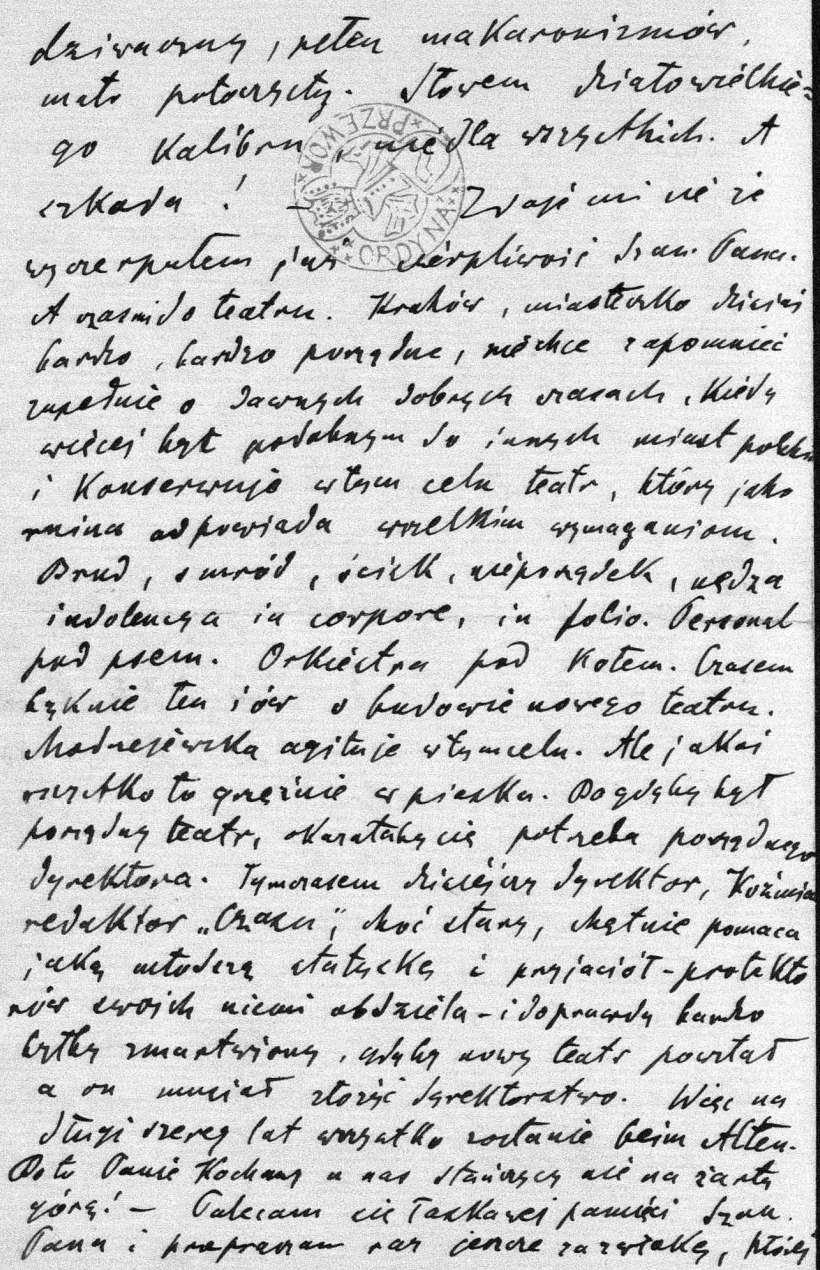 dziwaczny, pełen makaronizmów,
mało potoczysty. Słowem działo wielkie-
go kalibru, nie dla wszystkich. A
szkoda! — Zdaje mi się że
wyczerpałem już cierpliwość Szan. Pana.
A zatem do teatru. Kraków, miasteczko dzisiaj
bardzo, bardzo porządne, nie chce zapomnieć
zupełnie o dawnych dobrych czasach, kiedy
więcej był podobnym do innych miast polskich
i konserwuje w tym celu teatr, który jako
ruina odpowiada wszelkim wymaganiom.
Brud, smród, ścisk, nieporządek, nędza
indolencya in corpore, in folio. Personal
pod psem. Orkiestra pod kotem. Czasem
bąknie ten i ów o budowie nowego teatru.
Modrzejewska agituje w tym celu. Ale jakoś
wszystko to grzęźnie w piasku. Bo gdyby był
porządny teatr, okazałaby się potrzeba porządnego
dyrektora. Tymczasem dzisiejszy dyrektor, Koźmian
redaktor „Czasu", choć stary, chętnie pomaca
jaką młodszą statystkę i przyjaciół-protekto
rów swoich niemi obdziela - i doprawdy bardzo
byłby zmartwiony, gdyby nowy teatr powstał
a on musiał złożyć dyrektorstwo. Więc na
długi szereg lat wszystko zostanie beim Alten.
Bo to Panie Kochany u nas stańczycy nie na żarty
górą! — Polecam się łaskawej pamięci Szan.
Pana i przepraszam raz jeszcze za zwłokę, której
PRZEWOR
ORDYNA